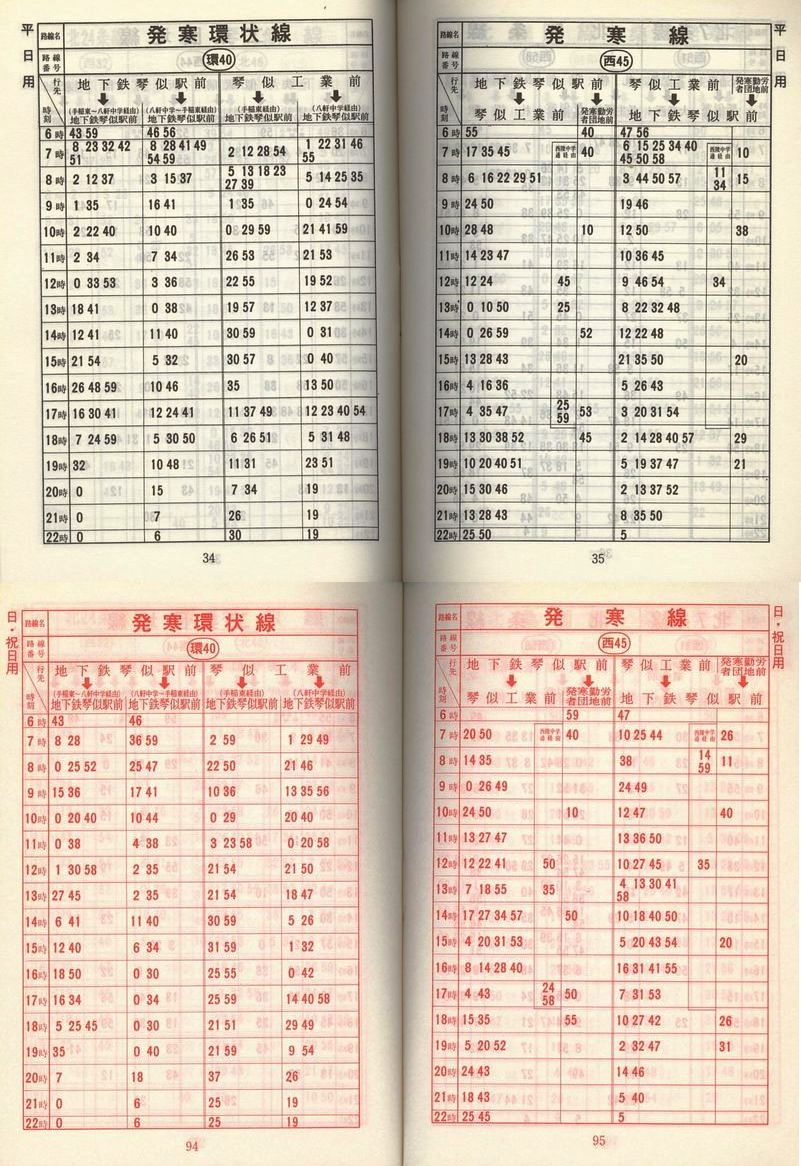 平日用
路線名 発寒環状線
路線番号 環40
行先 地下鉄琴似駅前 琴似工業前
時刻 (手稲東~八軒中学経由)地下鉄琴似駅前 (八軒中学~手稲東経由)地下鉄琴似駅前 (手稲東経由)地下鉄琴似駅前 (八軒中学経由)地下鉄琴似駅前
6時 43 59 46 56
7時 8 23 32 42 51 8 28 41 49 54 59 2 12 28 54 1 22 31 46 55
8時 2 12 37 3 15 37 5 13 18 23 27 39 5 14 25 35
9時 1 35 16 41 1 35 0 24 54
10時 2 22 40 10 40 0 29 59 21 41 59
11時 2 34 7 34 26 53 21 53
12時 0 33 53 3 36 22 55 19 52
13時 18 41 0 38 19 57 12 37
14時 12 41 11 40 30 59 0 31
15時 21 54 5 32 30 57 0 40
16時 26 48 59 10 46 35 13 50
17時 16 30 41 12 24 41 11 37 49 12 23 40 54
18時 7 24 59 5 30 50 6 26 51 5 31 48
19時 32 10 48 11 31 23 51
20時 0 15 7 34 19
21時 0 7 26 19
22時 0 6 30 19
34
平日用
路線名 発寒線
路線番号 西45
行先 地下鉄琴似駅前 琴似工業前 発寒勤労者団地前
時刻 琴似工業前 発寒勤労者団地前 地下鉄琴似駅前
6時 55 40 47 56
7時 17 35 45 西陵中学通経由 40 6 15 25 34 40 45 50 58 西陵中学通経由 10
8時 6 16 22 29 51 3 44 50 57 11 34 15
9時 24 50 19 46
10時 28 48 10 12 50 38
11時 14 23 47 10 36 45
12時 12 24 45 9 46 54 34
13時 0 10 50 25 8 22 32 48
14時 0 26 59 52 12 22 48
15時 13 28 43 21 35 50 20
16時 4 16 36 5 26 43
17時 4 35 47 25 59 53 3 20 31 54
18時 13 30 38 52 45 2 14 28 40 57 29
19時 10 20 40 51 5 19 37 47 21
20時 15 30 46 2 13 37 52
21時 13 28 43 8 35 50
22時 25 50 5
35
日・祝日用
路線名 発寒環状線
路線番号 環40
行先 地下鉄琴似駅前 琴似工業前
時刻 (手稲東~八軒中学経由)地下鉄琴似駅前 (八軒中学~手稲東経由)地下鉄琴似駅前 (手稲東経由)地下鉄琴似駅前 (八軒中学経由)地下鉄琴似駅前
6時 43 46
7時 8 28 36 59 2 59 1 29 49
8時 0 25 52 25 47 22 50 21 46
9時 15 36 17 41 10 36 13 35 56
10時 0 20 40 10 44 0 29 20 40
11時 0 38 4 38 3 23 58 0 20 58
12時 1 30 58 2 35 21 54 21 50
13時 27 45 2 35 21 54 18 47
14時 6 41 11 40 30 59 5 26
15時 12 40 6 34 31 59 1 32
16時 18 50 0 30 25 55 0 42
17時 16 34 0 34 25 59 14 40 58
18時 5 25 45 0 30 21 51 29 49
19時 35 0 40 21 59 9 54
20時 7 18 37 26
21時 0 6 25 19
22時 0 6 25 19
94
日・祝日用
路線名 発寒線
路線番号 西45
行先 地下鉄琴似駅前 琴似工業前 発寒勤労者団地前
時刻 琴似工業前 発寒勤労者団地前 地下鉄琴似駅前
6時 59 47
7時 20 50 西陵中学通経由 40 10 25 44 西陵中学通経由 26
8時 14 35 38 14 59 11
9時 0 26 49 24 49
10時 24 50 10 12 47 40
11時 13 27 47 13 36 50
12時 12 22 41 50 10 27 45 35
13時 7 18 55 35 4 13 30 41 58
14時 17 27 34 57 50 10 18 40 50
15時 4 20 31 53 5 20 43 54 20
16時 8 14 28 40 16 31 41 55
17時 4 43 24 58 50 7 31 53
18時 15 35 55 10 27 42 26
19時 5 20 52 2 32 47 31
20時 24 43 14 46
21時 18 43 5 40
22時 25 45 5
95